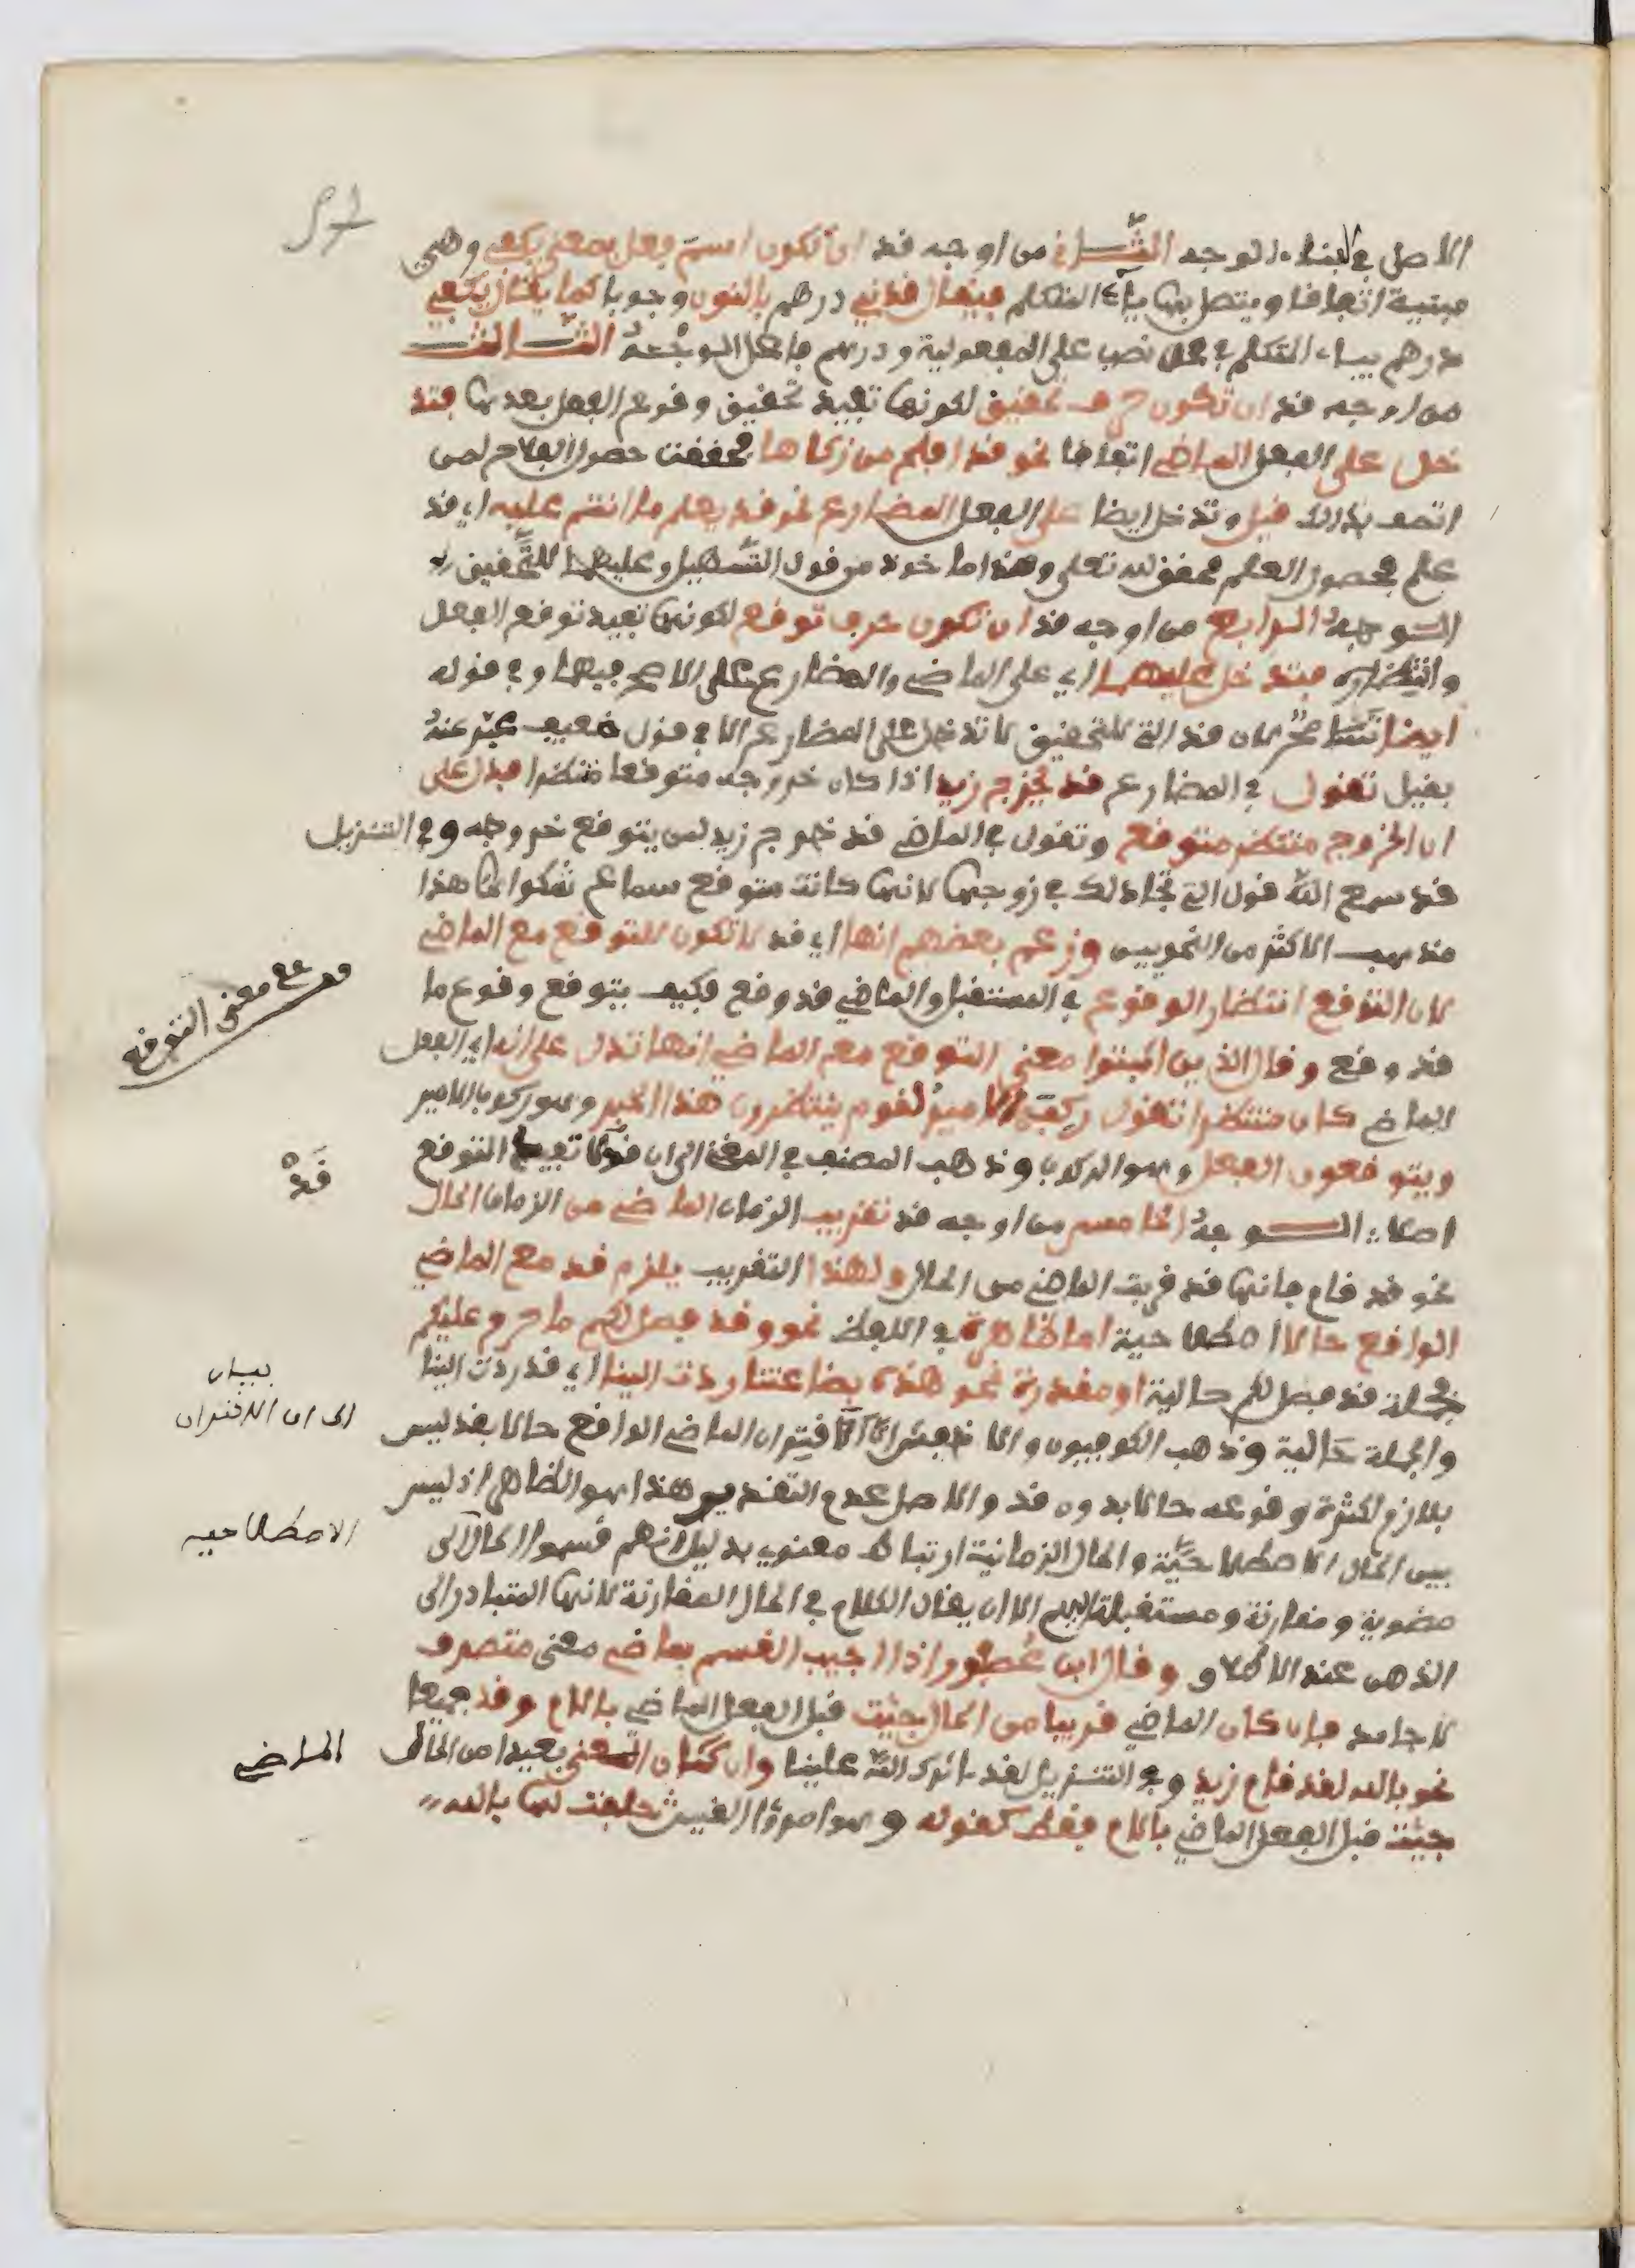 الاصل في البناء الوجه الثاني من اوجه قد ان تكون اسم فعل بمعنى يكفي وهي
مبنية اتفاقا ويتصل بها ياء المتكلم فيقال قدني درهم بالنون وجوبا كما يقال يكفيني
درهم بياء المتكلم في محل نصب على المفعولية ودرهم فاعل الوجه الثالث
من اوجه قد ان تكون حرف تحقيق لكونها تفيد تحقيق وقوع الفعل بعدها فتد
خل على الفعل الماضي اتفاقا نحو قد افلح من زكاها فحققت حصول الفلاح لمن
اتصف بذالك قيل وتدخل ايضا على الفعل المضارع نحو قد يعلم ما انتم عليه اي قد
علم فحصول العلم محقق لله تعلى وهذا ماخوذ من قول التسهيل وعليهما للتحقيق
الوجه الرابع من اوجه قد ان تكون حرف توقع لكونها تفيد توقع الفعل
وانتظاره فتدخل عليهما اي على الماضي والمضارع على الاصح فيهما وفي قوله
ايضا تسامح لان قد التي للتحقيق لا تدخل على المضارع الا في قول ضعيف عبر عنه
بقيل تقول في المضارع قد يخرج زيد اذا كان خروجه متوقعا منتظرا فدل على
ان الخروج منتظر متوقع وتقول في الماضي قد خرج زيد لمن يتوقع خروجه وفي التنزيل
قد سمع الله قول التي تجادلك في زوجها لانها كانت متوقع سماع شكواها هذا
مذهب الاكثر من النحويين وزعم بعضهم انها اي قد لا تكون للتوقع مع الماضي
لان التوقع انتظار الوقوع في المستقبل والماضي قد وقع فكيف يتوقع وقوع ما
قد وقع وقال الذين اثبتوا معنى التوقع مع الماضي انها تدل على انه اي الفعل
الماضي كان منتظرا تقول ركب الامير لقوم ينتظرون هذا الخبر وهو ركوب الامير
ويتوقعون الفعل وهو الركوب وذهب المصنف في المغني الى ان قد لا تفيد التوقع
اصلا الوجه الخامس من اوجه قد تقريب الزمان الماضي من الزمان الحال
نحو قد قام فانها قد قربت الماضي من الحال ولهذا التقريب يلزم قد مع الماضي
الواقع حالا اصطلاحية اما ظاهرة في اللفظ نحو وقد فصل لكم ما حرم عليكم
فجملة قد فصل لكم حالية او مقدرة نحو هذه بضاعتنا ردت الينا اي قد ردت الينا
والجملة حالية وذهب الكوفيون والاخفش الى ان اقتران الماضي الواقع حالا بقد ليس
بلازم لكثرة وقوعه حالا بدون قد والاصل عدم التقدير هذا هو الظاهر اذ ليس
بين الحال الاصطلاحية والحال الزمانية ارتباط معنوي بدليل انهم قسموا الحال الى
مضوية ومقارنة ومستقبلة اللهم الا ان يقال الكلام في الحال المقارنة لانها المتبادر الى
الذهن عند الاطلاق وقال ابن عصفور اذا اجيب القسم بماضي معنى متصرف
لا جامد فان كان الماضي قريبا من الحال جئت قبل الفعل الماضي باللام وقد جميعا
نحو بالله لقد قام زيد وفي التنزيل لقد اثرك الله علينا وان كان المعنى بعيدا من الحال
جئت قبل الفعل الماضي باللام فقط كقوله وهو امرؤ القيس حلفت لها بالله
مع معنى التوقع
قَدْ
بيان
الى ان الاقتران
الاصطلاحيه
الماضي